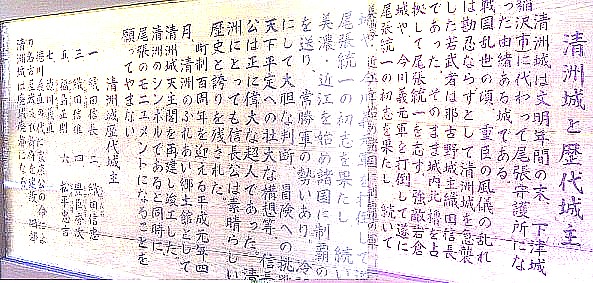 清洲城と歴代城主
清洲城は文明年間の末、下津城
稲沢市に代わって尾張守護所にな
った由緒ある城である。
戦国乱世の頃、重臣の風儀の乱れ
は勘忍ならずとして清洲城を急襲
した若武者は那古野城主織田信長
であった。そのまま城内北櫓を占
拠して尾張統一を志す。強敵岩倉
城や、今川義元軍を打倒して遂に
尾張統一の初志を果たし、続いて
尾張統一の初志を果たし、続い
美濃・近江を始め諸国に制覇の
を送り、常勝軍の勢いあり、冷
にして大胆な判断、冒険への挑
天下平定への壮大な構想等、信
公は正に偉大な超人であった。清
洲にとっても信長公は素晴らしい
歴史と誇りを残された。
町制百周年を迎える平成元年四
月、清洲のふれあい郷土館として
清洲城天主閣を再建し竣工した。
清洲のシンボルであると同時に
尾張のモニュメントになることを
願ってやまない。
清洲城歴代城主
一 織田信長 二 織田信忠
三 織田信雄 四 豊臣秀次
五 福島正則 六 松平忠吉
七 徳川義直